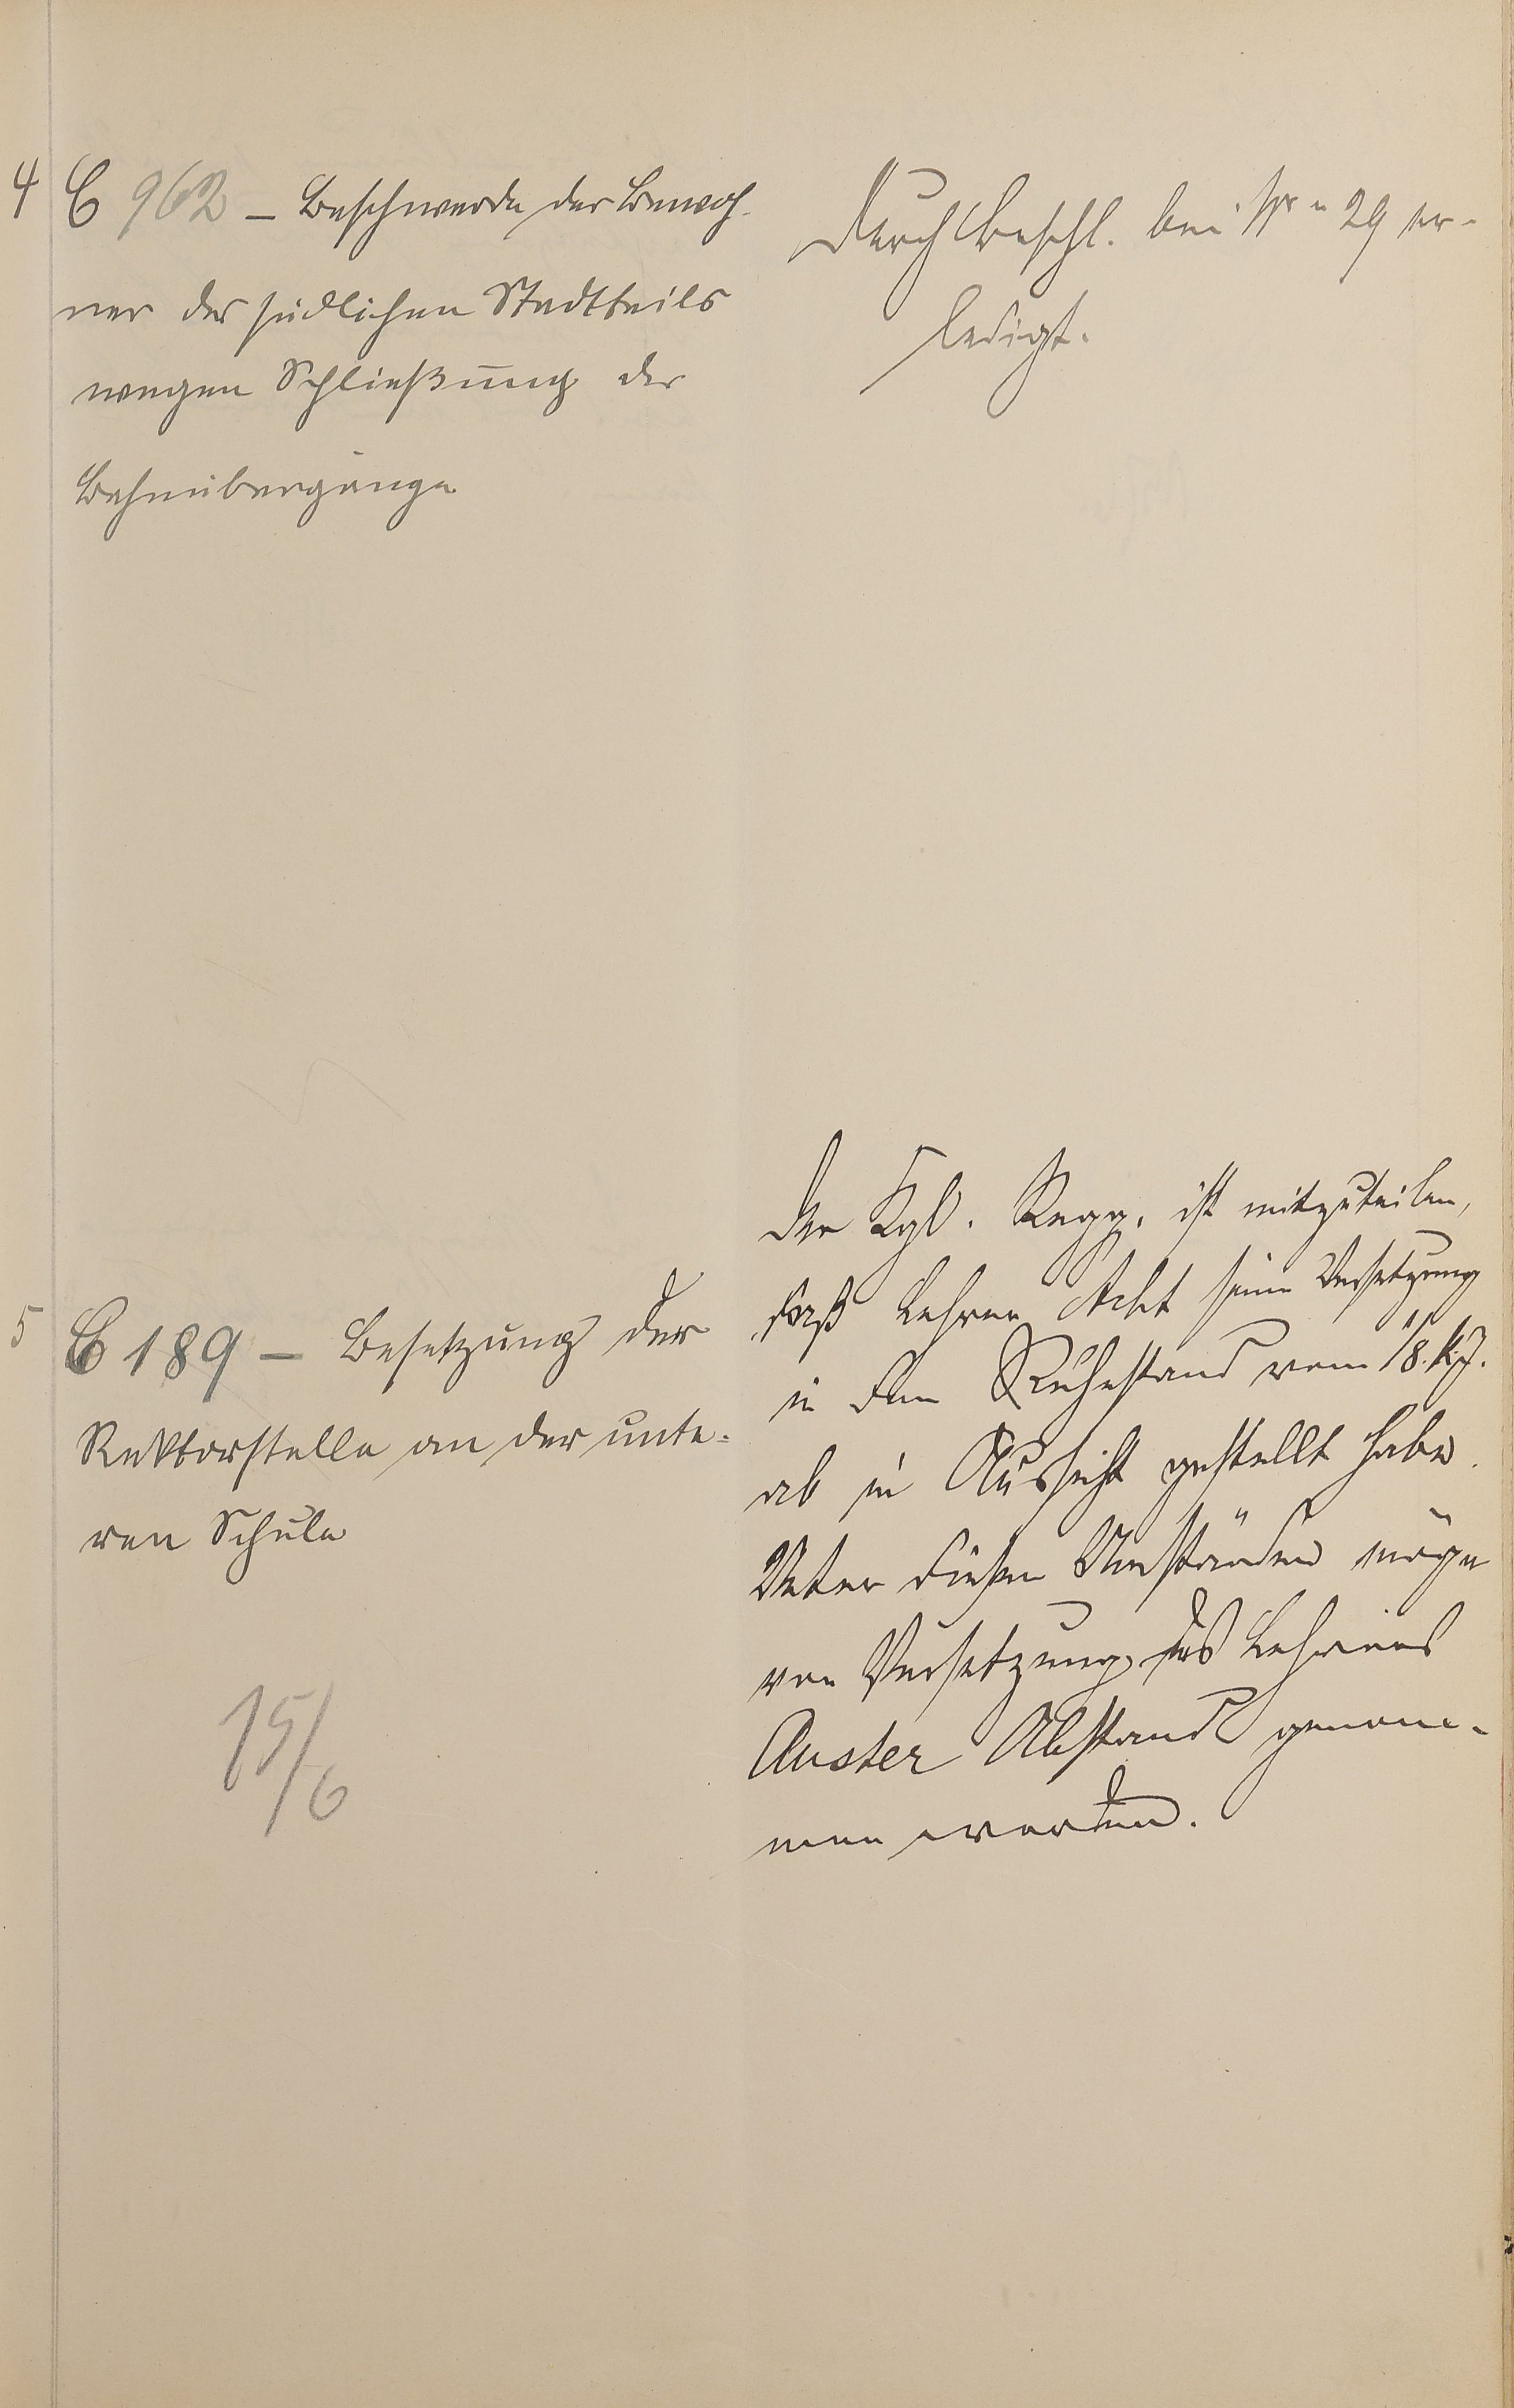 4 C 962 – Beschwerde der Bewoh-
ner des südlichen Stadtteils
wegen Schließung der
Bahnübergänge
Durch Beschl. bei Nr. 29 er-
ledigt.
5 C 189 – Besetzung der
Rektorstelle an der unte-
ren Schule
15/6
Der Kgl. Regg. ist mitzuteilen,
daß Lehrer Acht seine Versetzung
in den Ruhestand vom 1/8. k. J.
ab in Aussicht gestellt habe.
Unter diesen Umständen möge
von Versetzung des Lehrers
Auster Abstand genom-
men werden.